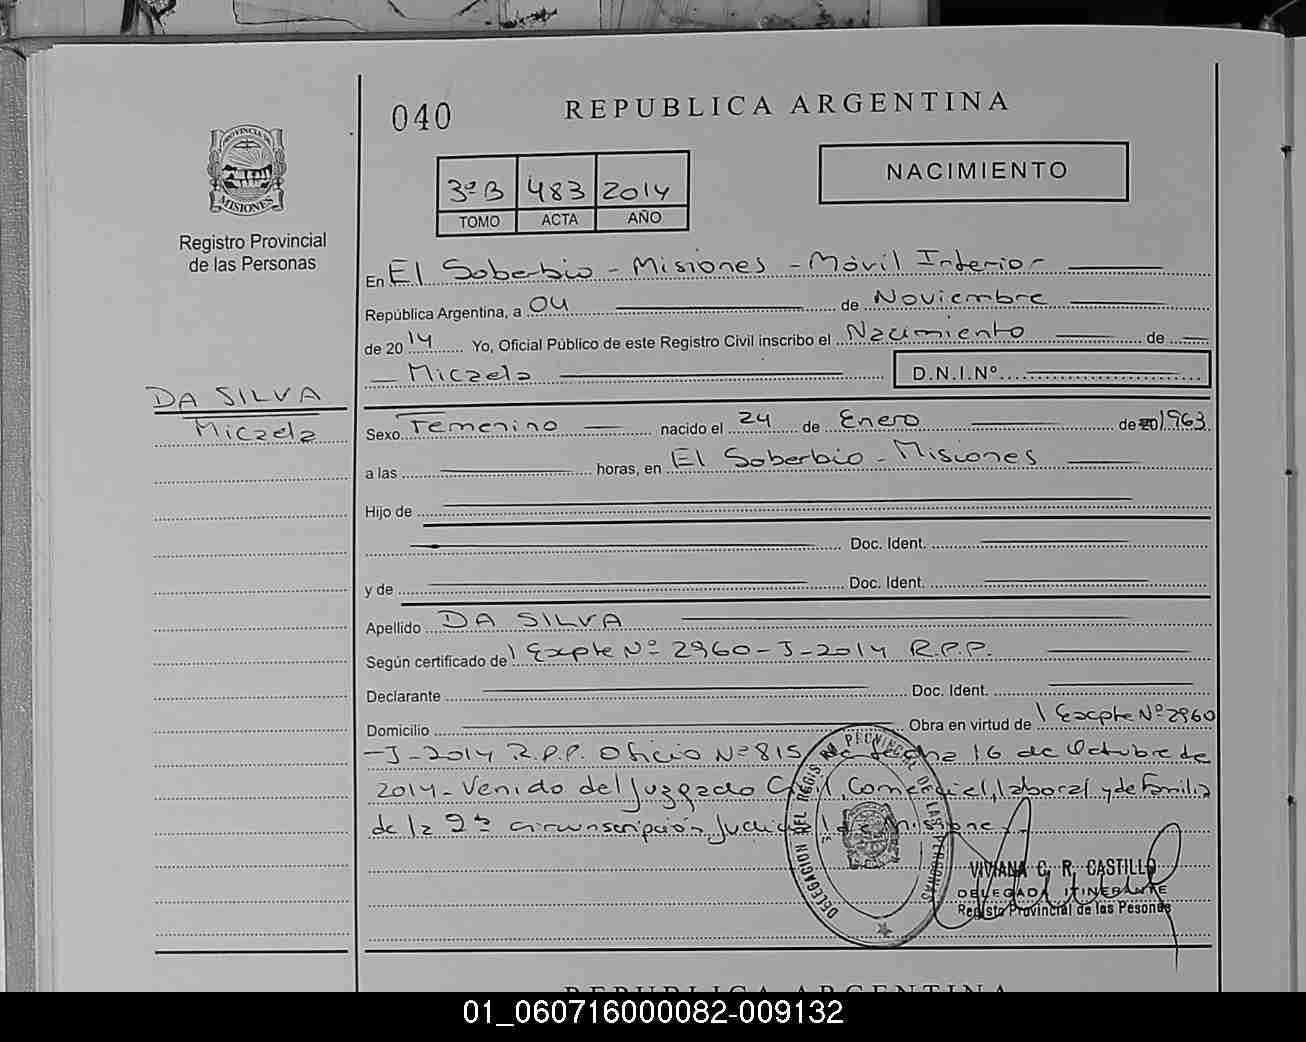 040
REPUBLICA ARGENTINA
PROVINCIA DE
MISIONES
Registro Provincial
de las Personas
3º B 483 2014
TOMO ACTA AÑO
NACIMIENTO
En El Soberbio - Misiones - Móvil Interior
República Argentina, a 04 de Noviembre
de 2014 Yo, Oficial Público de este Registro Civil inscribo el Nacimiento de
Micaela D.N.I.Nº
DA SILVA
Micaela
Sexo Femenino nacido el 24 de Enero de 20 1963
a las horas, en El Soberbio - Misiones
Hijo de
Doc. Ident.
y de Doc. Ident.
Apellido DA SILVA
Según certificado de Expte Nº 2960-J-2014 R.P.P.
Declarante Doc. Ident.
Domicilio Obra en virtud de Expte Nº 2960
-J-2014 R.P.P. Oficio Nº 815 de fecha 16 de Octubre de
2014- Venido del Juzgado Civil, Comercial, laboral y de Familia
de la 2da circunscripción Judicial de Misiones
DELEGACION DEL REGISTRO PROVINCIAL DE LAS PERSONAS
VIVIANA C. R. CASTILLO
DELEGADA ITINERANTE
Registo Provincial de las Pesonas
REPUBLICA ARGENTINA
01_060716000082-009132